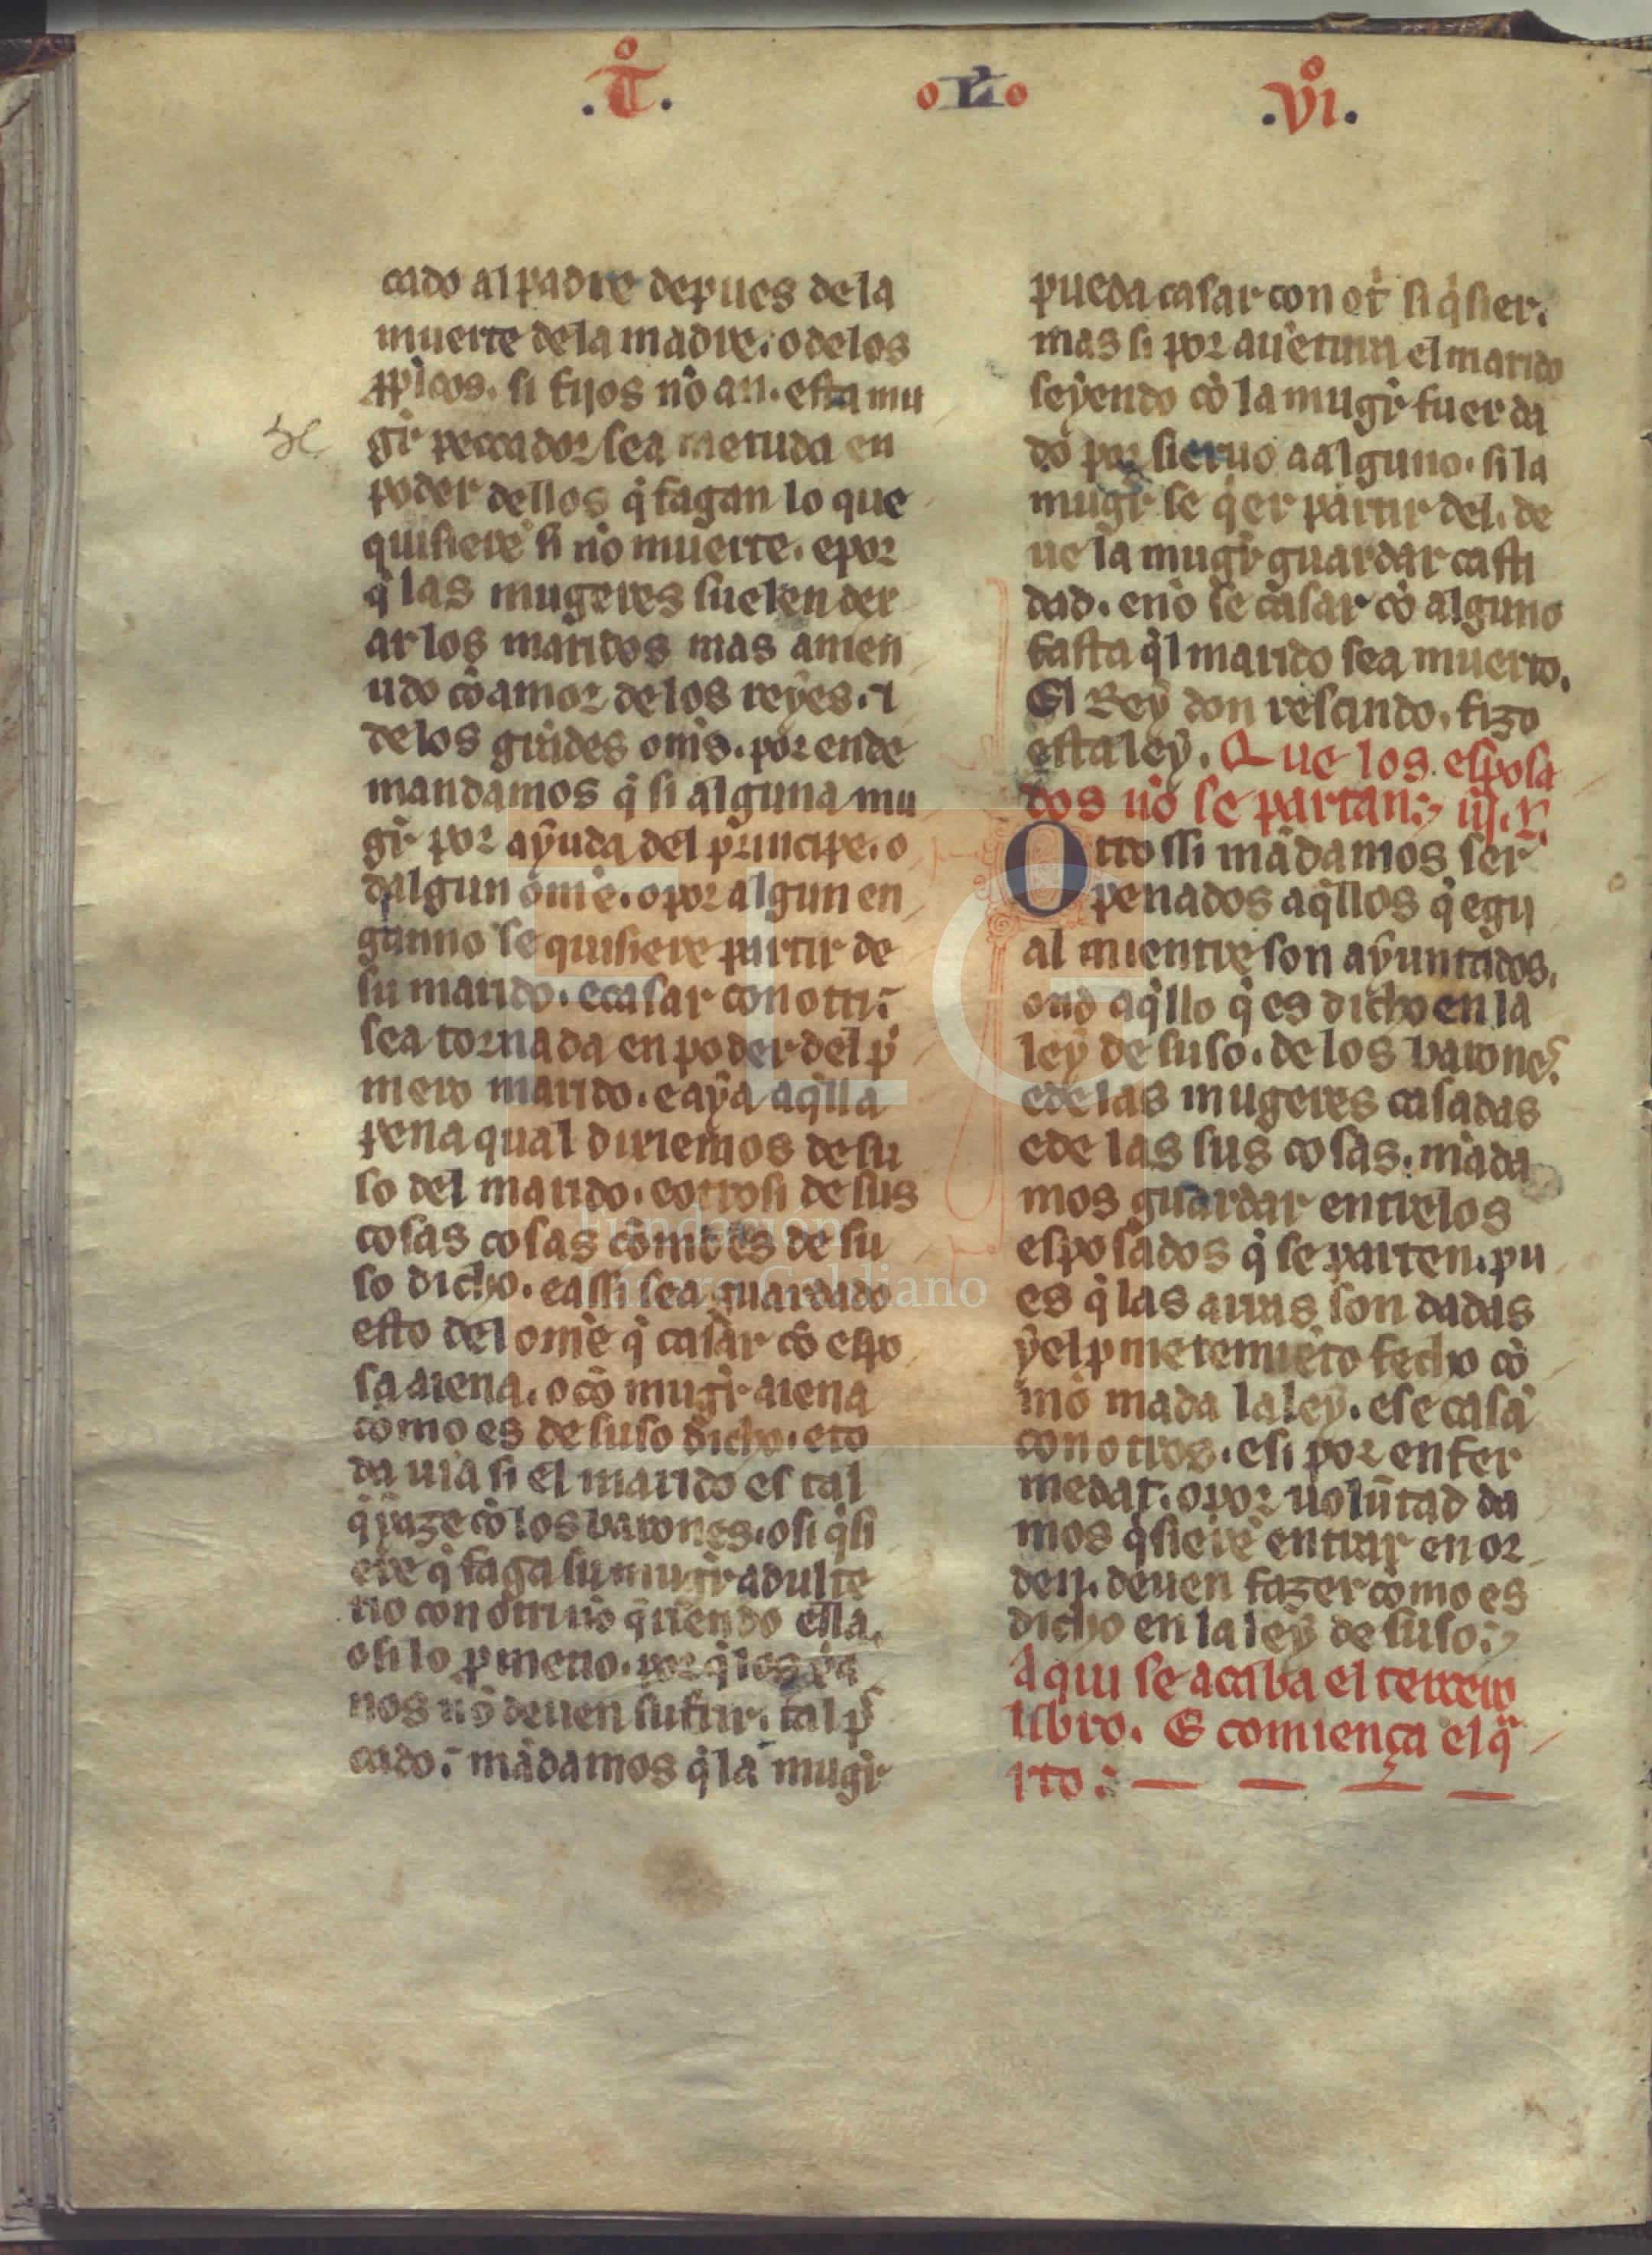 .T̊. oLo .vi̊.
cado al padre depues de la
muerte dela madre. o delos
ꝓp̃ĩcos. si fijos nõ an. esta mu
gr̃ peccador sea metuda en
poder dellos q̃ fagan lo que
quisierẽ si nõ muerte. e por
q̃ las mugeres suelen dex
ar los maridos mas amen
udo cõ amor de los reyes. ⁊
delos grãdes oñis. por ende
mandamos q̃ si alguna mu
gr̃ por ayuda del principe. o
dalgun om̃e. o por algun en
ganno se quisiere partir de
su marido. e casar con otri.
sea tornada en poder del p̃
mero marido. e aya aq̃lla
pena qual dixiemos de su
so del marido. e otrosi de sus
cosas cosas cõmo es de su
so dicho. e assi sea guardado
esto del om̃e q̃ casar cõ espo
sa aiena. o cõ mugr̃ aiena
cõmo es de suso dicho. e to
da uia si el marido es tal
q̃ yaze cõ los barones. o si q̃si
ere q̃ faga su mugr̃ adulte
rio con otri nõ q̃riendo ella.
o si lo ꝑmetio. por q̃ los xp̃a
nos nõ deuen sufrir. tal p̃
cado. mãdamos q̃ la mugr̃
pueda casar con ot̃ si q̃sier.
mas si por auẽtura el marido
seyendo cõ la mugr̃ fuer da
do por sieruo a alguno. si la
mugr̃ se q̃er partir del. de
ue la mugr̃ guardar casti
dad. e nõ se casar cõ alguno
fasta q̃l marido sea muerto.
El Rey don resçindo. fizo
esta ley. Que los esposa
dos nõ se partan. iij. R.
Otro ssi mãdamos ser
penados aq̃llos q̃ egu
al mientre son ayuntados.
ond aq̃llo q̃ es dicho en la
ley de suso. de los barones.
e de las mugeres casadas
e de las sus cosas. mãda
mos guardar entrelos
esposados q̃ se parten. pu
es q̃ las arras son dadas
y el ꝓmetemiẽto fecho cõ
mo mãda la ley. e se casã
con otros. e si por enfer
medat. o por uolũtad da
mos q̃sierẽ entrar en or
den. deuen fazer cõmo es
dicho en la ley de suso.
Aqui se acaba el tercero
libro. E comiença el q̃
rto.
Fundación
Lázaro Galdiano